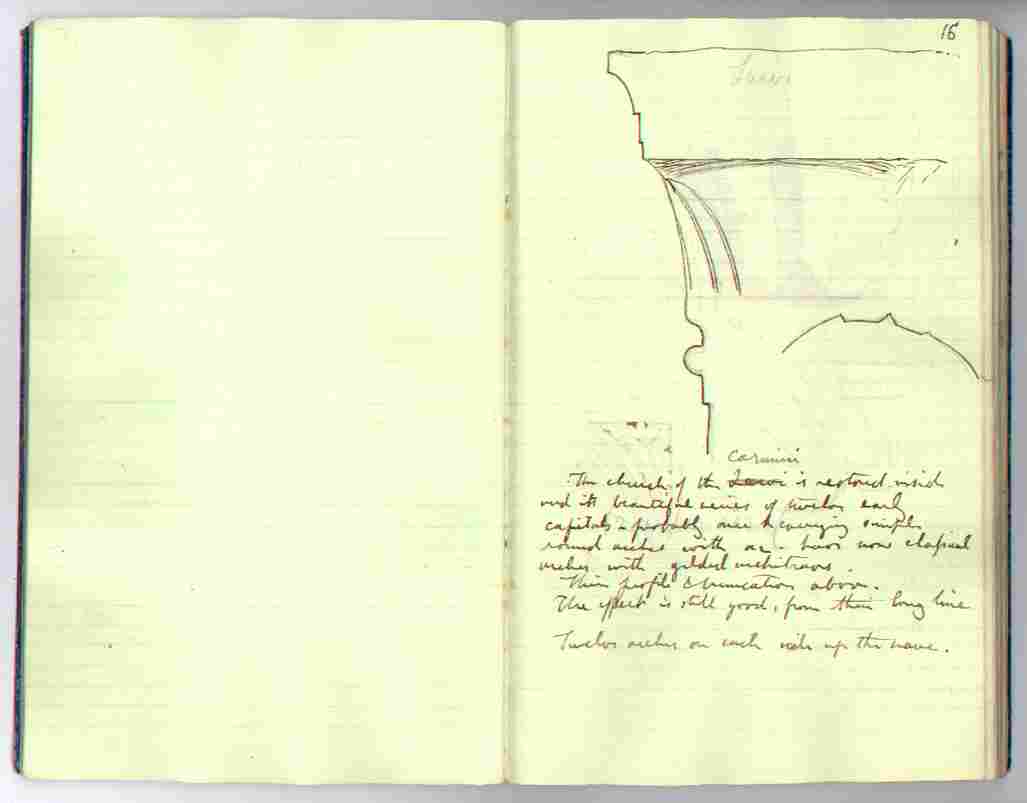 16
Carmini
The church of the Frari is restored inside
and its beautiful series of twelve early
capitals - probably once carrying simple
round arches with an - have now classical
arches with gilded architraves.
Their profile & truncation above.
The effect is still good, from their long line
Twelve arches on each side up the nave.